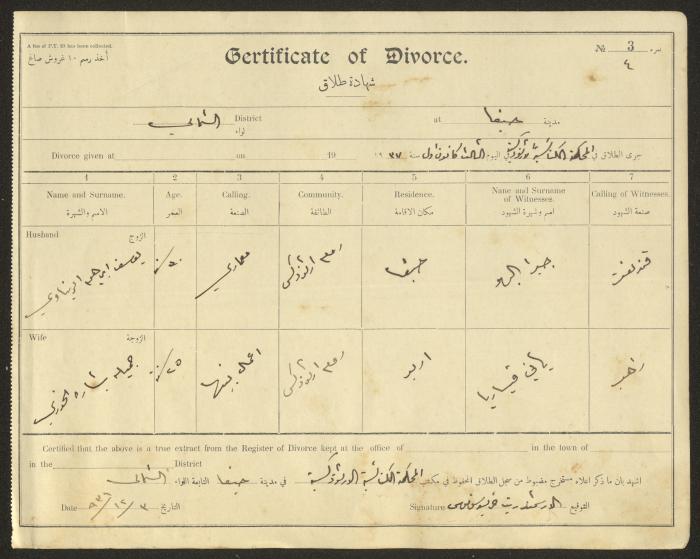 A fee of P.T. 10 has been collected.
أخذ رسم ١٠ غروش صاغ
Certificate of Divorce.
شهادة طلاق
№ 3 نمره
٤
الشمالي District لواء at حيفا مدينة
Divorce given at on 19 ١٩٣٧ سنة كانون اول الثالث اليوم في المحكمة الكنائسية جرى الطلاق في
1 2 3 4 5 6 7
Name and Surname. Age. Calling. Community. Residence. Name and Surname of Witnesses. Calling of Witnesses.
الاسم والشهرة العمر الصنعة الطائفة مكان الاقامة اسم وشهرة الشهود صنعة الشهود
Husband الزوج
يوسف ابراهيم ٥٠ معماري روم ارثوذكس حيفا جبرا
Wife الزوجة
جميله بشاره الخوري ٢٥ اعمال بيتها روم ارثوذكس اربد
Certified that the above is a true extract from the Register of Divorce kept at the office of in the town of
in the District
اشهد بان ما ذكر اعلاه مستخرج مضبوط من سجل الطلاق المحفوظ في مكتب المحكمة الكنائسية الارثوذكسية في مدينة حيفا التابعة اللواء الشمالي
Date ٣/١٢/٩٣٦ التاريخ Signature التوقيع